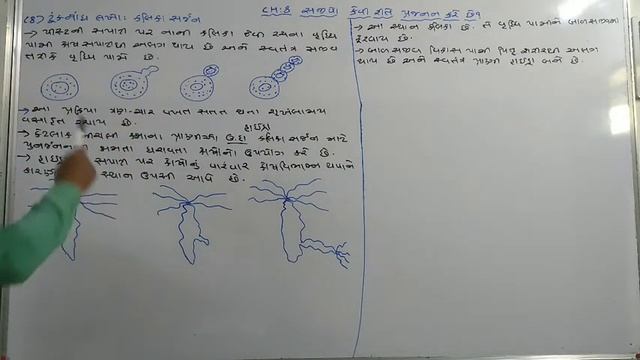 (8) ટૂંકનોંધ લખો: કલિકા સર્જન
CH:8 સજીવો કેવી રીતે પ્રજનન કરે છે?
→ યીસ્ટની સપાટી પર નાની કલિકા જેવી રચના વૃદ્ધિ
પામી અલગ થાય છે અને સ્વતંત્ર સજીવ
તરીકે વૃદ્ધિ પામે છે.
→ આ ક્રિયા ત્રણ-ચાર વખત સતત થતા શૃંખલામય
વસાહત રચાય છે.
→ કેટલાક
હાઈડ્રા
કલિકા સર્જન માટે
પુનર્જનનની ક્ષમતા ધરાવતા કોષોનો ઉપયોગ કરે છે.
→ સપાટી પર કોષોનું વારંવાર કોષવિભાજન થવાને
કારણે સ્થાન ઉપસી આવે છે.
→ આ સ્થાન કલિકા છે. તે વૃદ્ધિ પામીને બાળસજીવમાં
ફેરવાય છે.
→ બાળસજીવ વિકાસ પામી પિતૃ શરીરથી અલગ
થાય છે અને સ્વતંત્ર હાઈડ્રા બને છે.